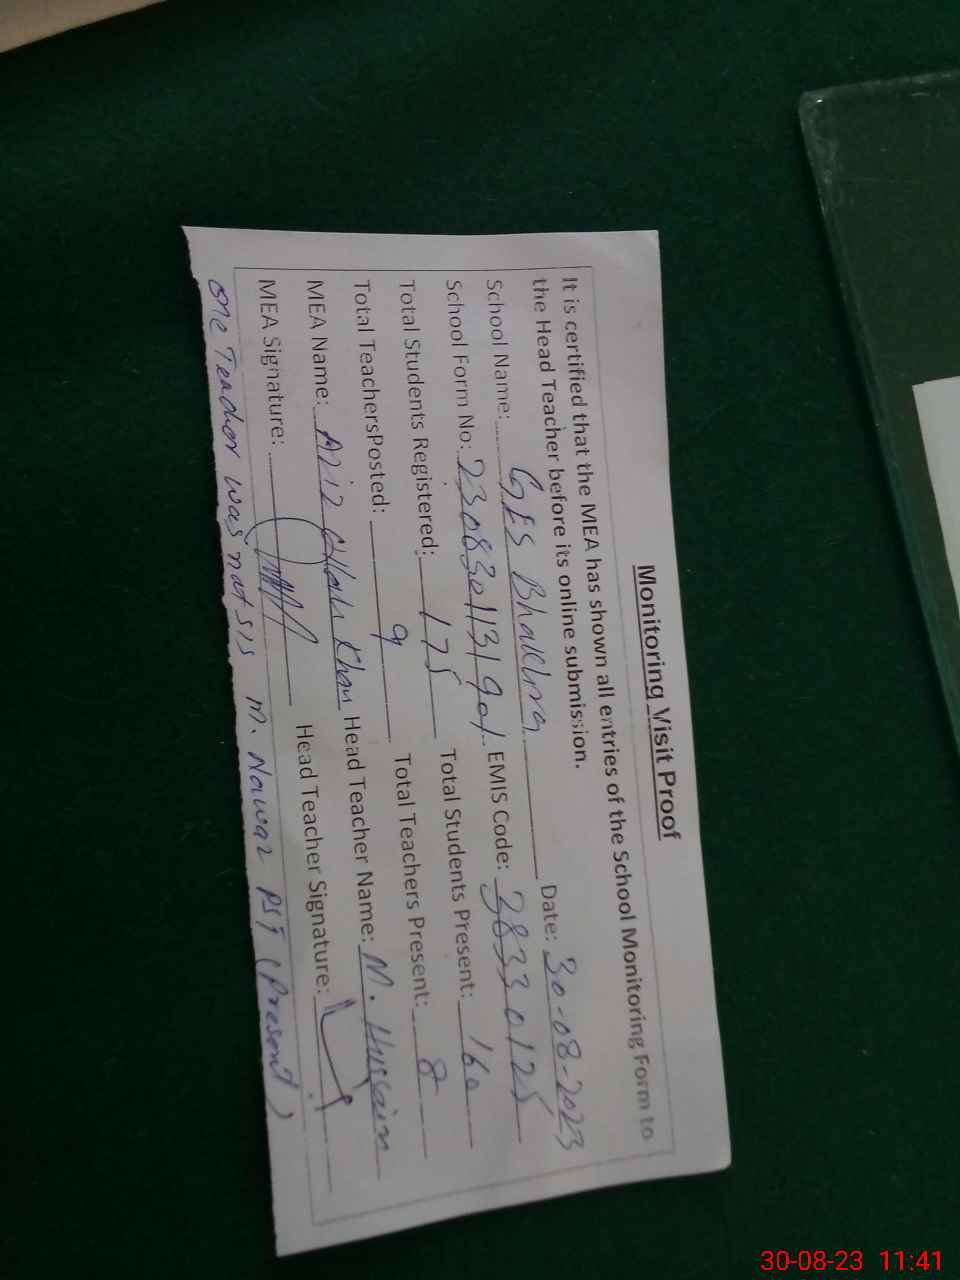 Monitoring Visit Proof
It is certified that the MEA has shown all entries of the School Monitoring Form to
the Head Teacher before its online submission.
School Name: GES Date: 30-08-2023
School Form No: EMIS Code: 38330125
Total Students Registered: 175 Total Students Present: 160
Total TeachersPosted: 9 Total Teachers Present: 8
MEA Name: Khan Head Teacher Name: M. Hussain
MEA Signature: Head Teacher Signature:
One Teacher was not sis M. Nawaz PST (Present)
30-08-23 11:41